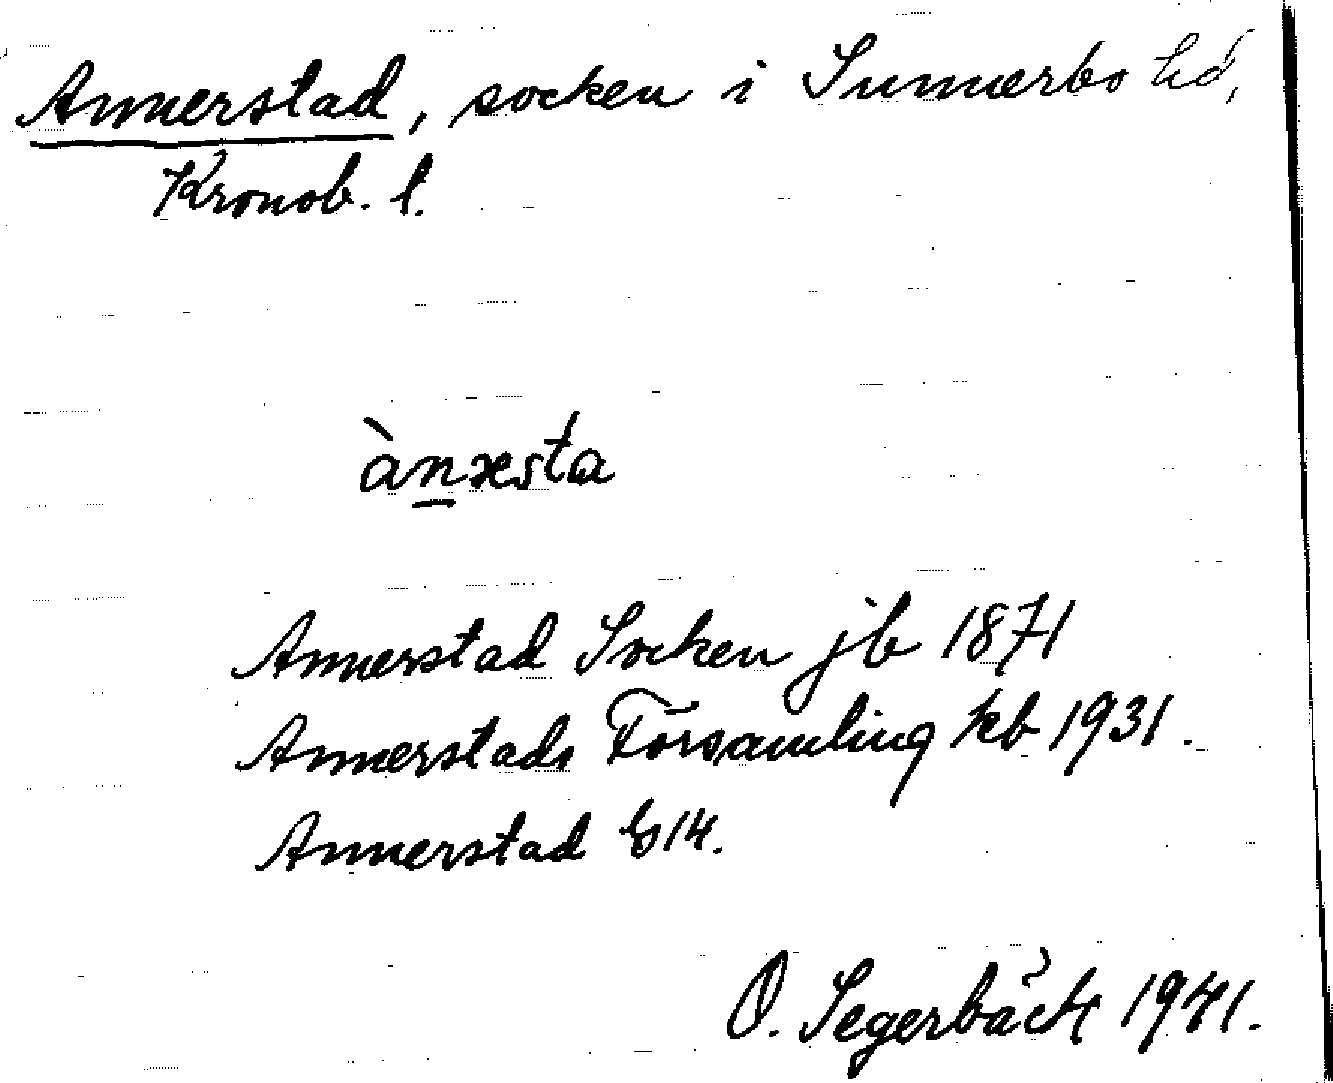 Annerstad, socken i Sunnerbo hd,
Kronob. l.
ànxsta
Annerstad Socken jb 1871
Annerstads Församling kb 1931.
Annerstad 14.
O. Segerbäck 1941.